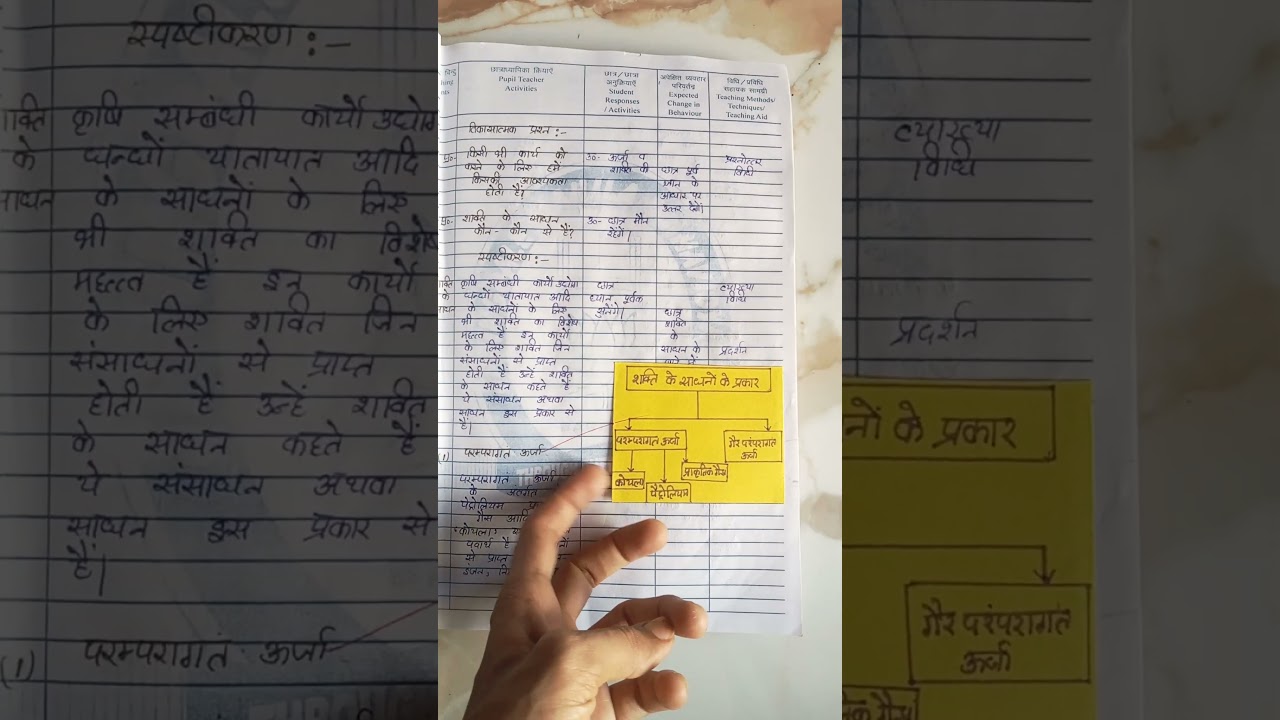 छात्राध्यापिका क्रियाएँ
Pupil Teacher
Activities
छात्र / छात्रा
अनुक्रियाएँ
Student
Responses
/ Activities
अपेक्षित व्यवहार
परिवर्तन
Expected
Change in
Behaviour
विधि / प्रविधि
सहायक सामग्री
Teaching Methods/
Techniques/
Teaching Aid
विकासात्मक प्रश्न :-
प्र०- किसी भी कार्य को
करने के लिए हमें
किसकी आवश्यकता
होती है?
उ०- ऊर्जा व
शक्ति की
छात्र पूर्व
ज्ञान के
आधार पर
उत्तर देंगे।
प्रश्नोत्तर
विधि
प्र०- शक्ति के साधन
कौन - कौन से हैं?
उ०- छात्र मौन
रहेंगे।
स्पष्टीकरण :-
कृषि सम्बंधी कार्यों उद्योग
के धन्धों यातायात आदि
के साधनों के लिए
भी शक्ति का विशेष
महत्त्व हैं इन कार्यों
के लिए शक्ति जिन
संसाधनों से प्राप्त
होती हैं उन्हें शक्ति
के साधन कहते हैं
ये संसाधन अथवा
साधन इस प्रकार से
हैं।
छात्र
ध्यान पूर्वक
सुनेंगे।
छात्र
शक्ति
के
साधन के
व्याख्या
विधि
प्रदर्शन
(1) परम्परागत ऊर्जा
परम्परागत ऊर्जा
के अंतर्गत
पेट्रोलियम
गैस
कोयला
पदार्थ है
से प्राप्त
शक्ति के साधनों के प्रकार
परम्परागत ऊर्जा
गैर परंपरागत
ऊर्जा
कोयला
पैट्रोलियम
प्राकृतिक गैस
स्पष्टीकरण :-
कृषि सम्बंधी कार्यों उद्योग
के धन्धों यातायात आदि
के साधनों के लिए
भी शक्ति का विशेष
महत्त्व हैं इन कार्यों
के लिए शक्ति जिन
संसाधनों से प्राप्त
होती हैं उन्हें शक्ति
के साधन कहते हैं
ये संसाधन अथवा
साधन इस प्रकार से
हैं।
(1) परम्परागत ऊर्जा
व्याख्या
विधि
प्रदर्शन
नों के प्रकार
गैर परंपरागत
ऊर्जा